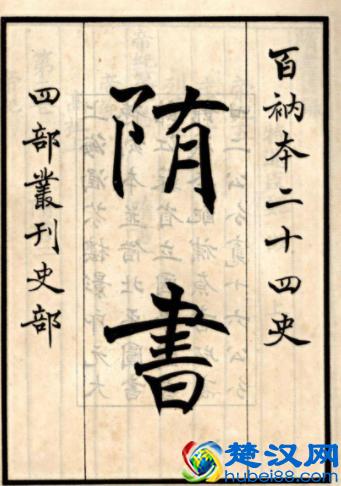 百衲本二十四史
陏書
四部叢刊史部
楚汉网
hubei88.com